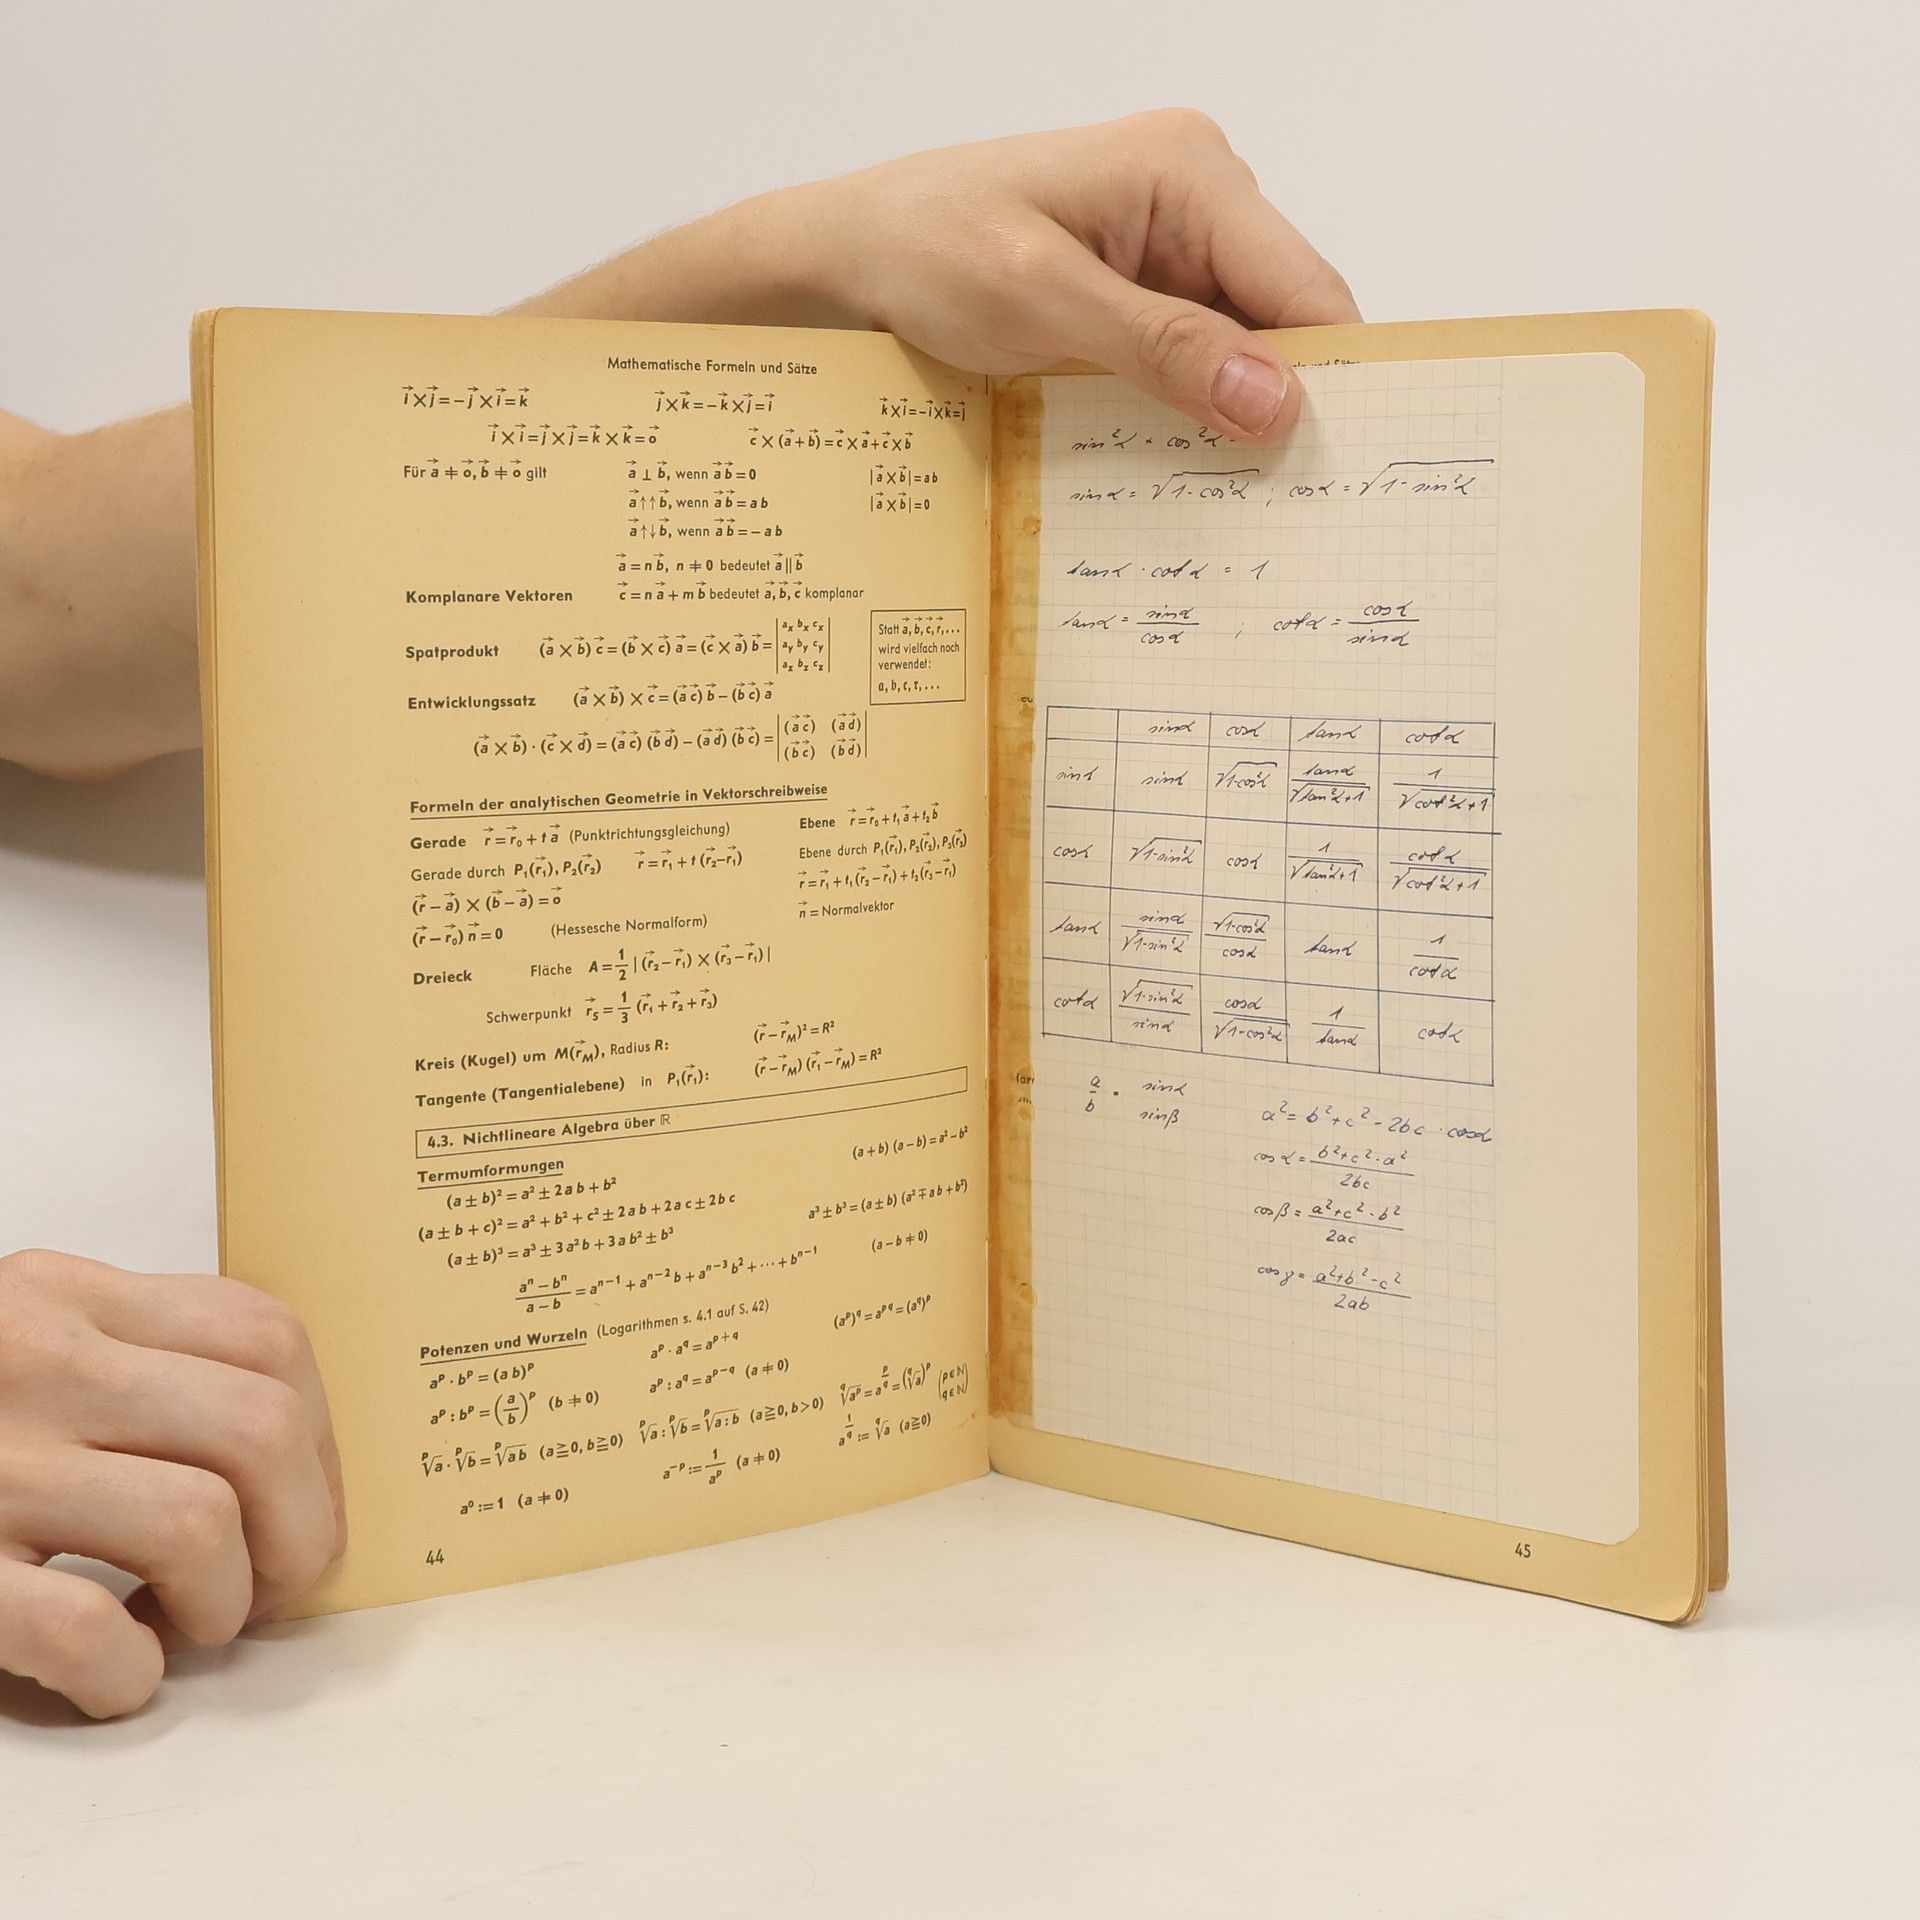 Mathematische Formeln und Sätze
i⃗×j⃗=−j⃗×i⃗=k⃗ j⃗×k⃗=−k⃗×j⃗=i⃗ k⃗×i⃗=−i⃗×k⃗=j⃗
i⃗×i⃗=j⃗×j⃗=k⃗×k⃗=o⃗ c⃗×(a⃗+b⃗)=c⃗×a⃗+c⃗×b⃗
Für a⃗≠o⃗, b⃗≠o⃗ gilt a⃗⊥b⃗, wenn a⃗b⃗=0 |a⃗×b⃗|=ab
a⃗↑↑b⃗, wenn a⃗b⃗=ab |a⃗×b⃗|=0
a⃗↑↓b⃗, wenn a⃗b⃗=−ab
a⃗=nb⃗, n≠0 bedeutet a⃗||b⃗
Komplanare Vektoren c⃗=na⃗+mb⃗ bedeutet a⃗, b⃗, c⃗ komplanar
Spatprodukt (a⃗×b⃗)c⃗=(b⃗×c⃗)a⃗=(c⃗×a⃗)b⃗=
|aₓ bₓ cₓ|
|a_y b_y c_y|
|a_z b_z c_z|
Statt a⃗, b⃗, c⃗, r⃗, ...
wird vielfach noch
verwendet:
a, b, c, r, ...
Entwicklungssatz (a⃗×b⃗)×c⃗=(a⃗c⃗)b⃗−(b⃗c⃗)a⃗
(a⃗×b⃗)·(c⃗×d⃗)=(a⃗c⃗)(b⃗d⃗)−(a⃗d⃗)(b⃗c⃗)=
|(a⃗c⃗) (a⃗d⃗)|
|(b⃗c⃗) (b⃗d⃗)|
Formeln der analytischen Geometrie in Vektorschreibweise
Gerade r⃗=r⃗₀+ta⃗ (Punktrichtungsgleichung) Ebene r⃗=r⃗₀+t₁a⃗+t₂b⃗
Gerade durch P₁(r⃗₁), P₂(r⃗₂) r⃗=r⃗₁+t(r⃗₂−r⃗₁) Ebene durch P₁(r⃗₁), P₂(r⃗₂), P₃(r⃗₃)
(r⃗−a⃗)×(b⃗−a⃗)=o⃗ r⃗=r⃗₁+t₁(r⃗₂−r⃗₁)+t₂(r⃗₃−r⃗₁)
(r⃗−r⃗₀)n⃗=0 (Hessesche Normalform) n⃗=Normalvektor
Dreieck Fläche A=1/2|(r⃗₂−r⃗₁)×(r⃗₃−r⃗₁)|
Schwerpunkt r⃗_S=1/3(r⃗₁+r⃗₂+r⃗₃)
Kreis (Kugel) um M(r⃗_M), Radius R: (r⃗−r⃗_M)²=R²
Tangente (Tangentialebene) in P₁(r⃗₁): (r⃗−r⃗_M)(r⃗₁−r⃗_M)=R²
4.3. Nichtlineare Algebra über ℝ
Termumformungen (a+b)(a−b)=a²−b²
(a±b)²=a²±2ab+b²
(a±b+c)²=a²+b²+c²±2ab+2ac±2bc a³±b³=(a±b)(a²∓ab+b²)
(a±b)³=a³±3a²b+3ab²±b³
(aⁿ−bⁿ)/(a−b)=aⁿ⁻¹+aⁿ⁻²b+aⁿ⁻³b²+···+bⁿ⁻¹ (a−b≠0)
Potenzen und Wurzeln (Logarithmen s. 4.1 auf S. 42)
aᵖ·bᵖ=(ab)ᵖ aᵖ·a^q=a^(p+q) (aᵖ)^q=a^(pq)=(a^q)ᵖ
aᵖ:bᵖ=(a/b)ᵖ (b≠0) aᵖ:a^q=a^(p−q) (a≠0) ^q√aᵖ=a^(p/q)=(^q√a)ᵖ (p∈N q∈N)
ᵖ√a·ᵖ√b=ᵖ√ab (a≧0, b≧0) ᵖ√a:ᵖ√b=ᵖ√a:b (a≧0, b>0) a^(1/q):=^q√a (a≧0)
a⁰:=1 (a≠0) a⁻ᵖ:=1/aᵖ (a≠0)
44
sin²α + cos²α
sinα = √1-cos²α ; cosα = √1-sin²α
tanα · cotα = 1
tanα = sinα/cosα ; cotα = cosα/sinα
sinα cosα tanα cotα
sinα sinα √1-cos²α tanα/√tan²α+1 1/√cot²α+1
cosα √1-sin²α cosα 1/√tan²α+1 cotα/√cot²α+1
tanα sinα/√1-sin²α √1-cos²α/cosα tanα 1/cotα
cotα √1-sin²α/sinα cosα/√1-cos²α 1/tanα cotα
a/b = sinα/sinβ
a² = b²+c²-2bc · cosα
cosα = b²+c²-a²/2bc
cosβ = a²+c²-b²/2ac
cosγ = a²+b²-c²/2ab
45